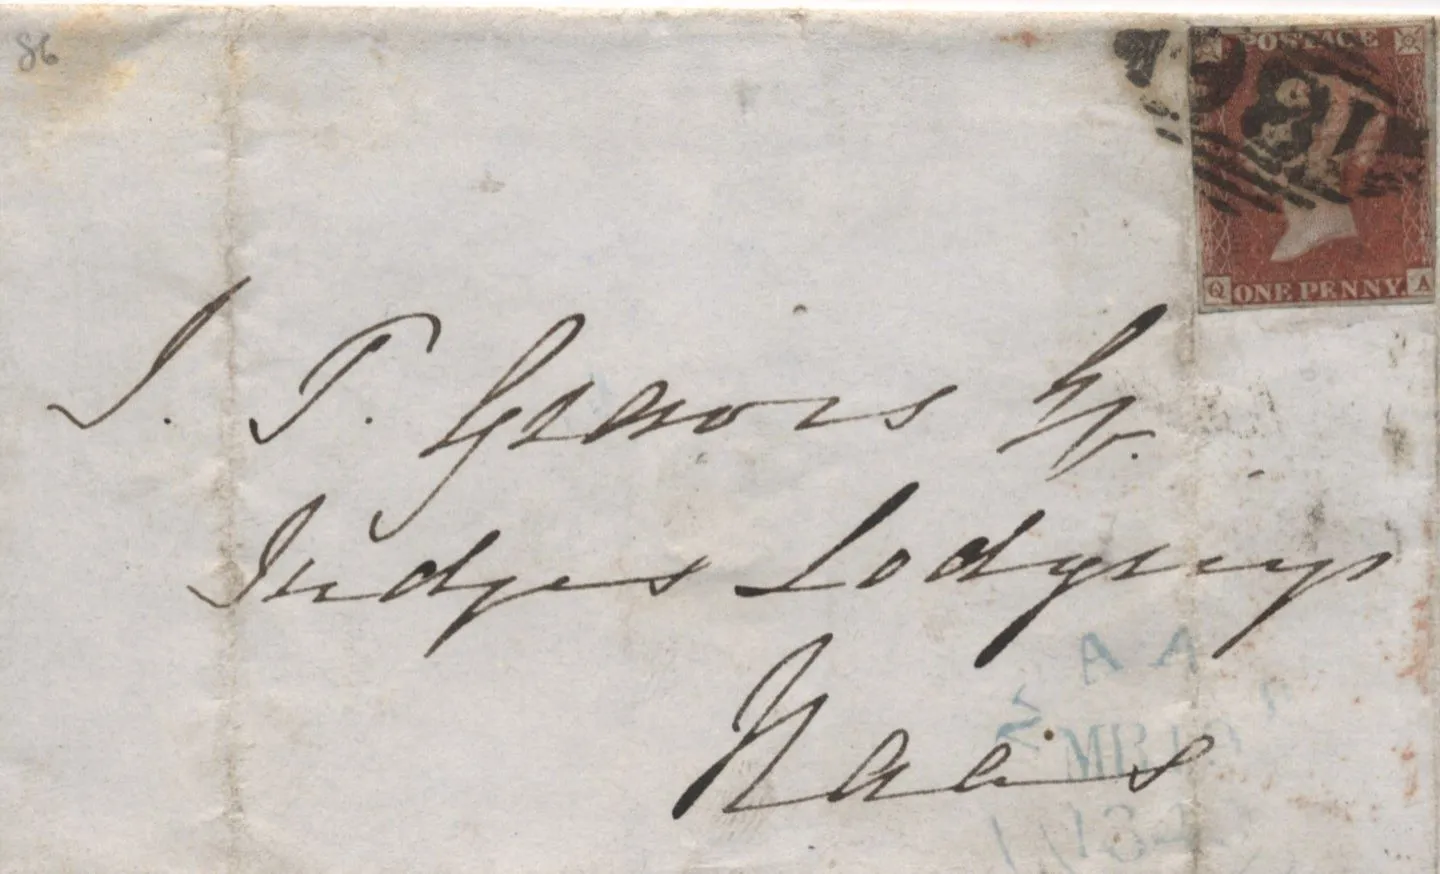 86
POSTAGE
Q ONE PENNY A
J. T. Graves Esqr.
Judges Lodgings
Naas
NAA
MR
184